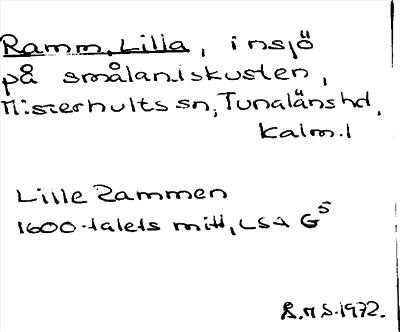 Ramm, Lilla, insjö
på smålandskusten,
Misterhults sn, Tunaläns hd,
Kalm. l
Lille Rammen
1600-talets mitt, LSA G5
S.M S. 1972.